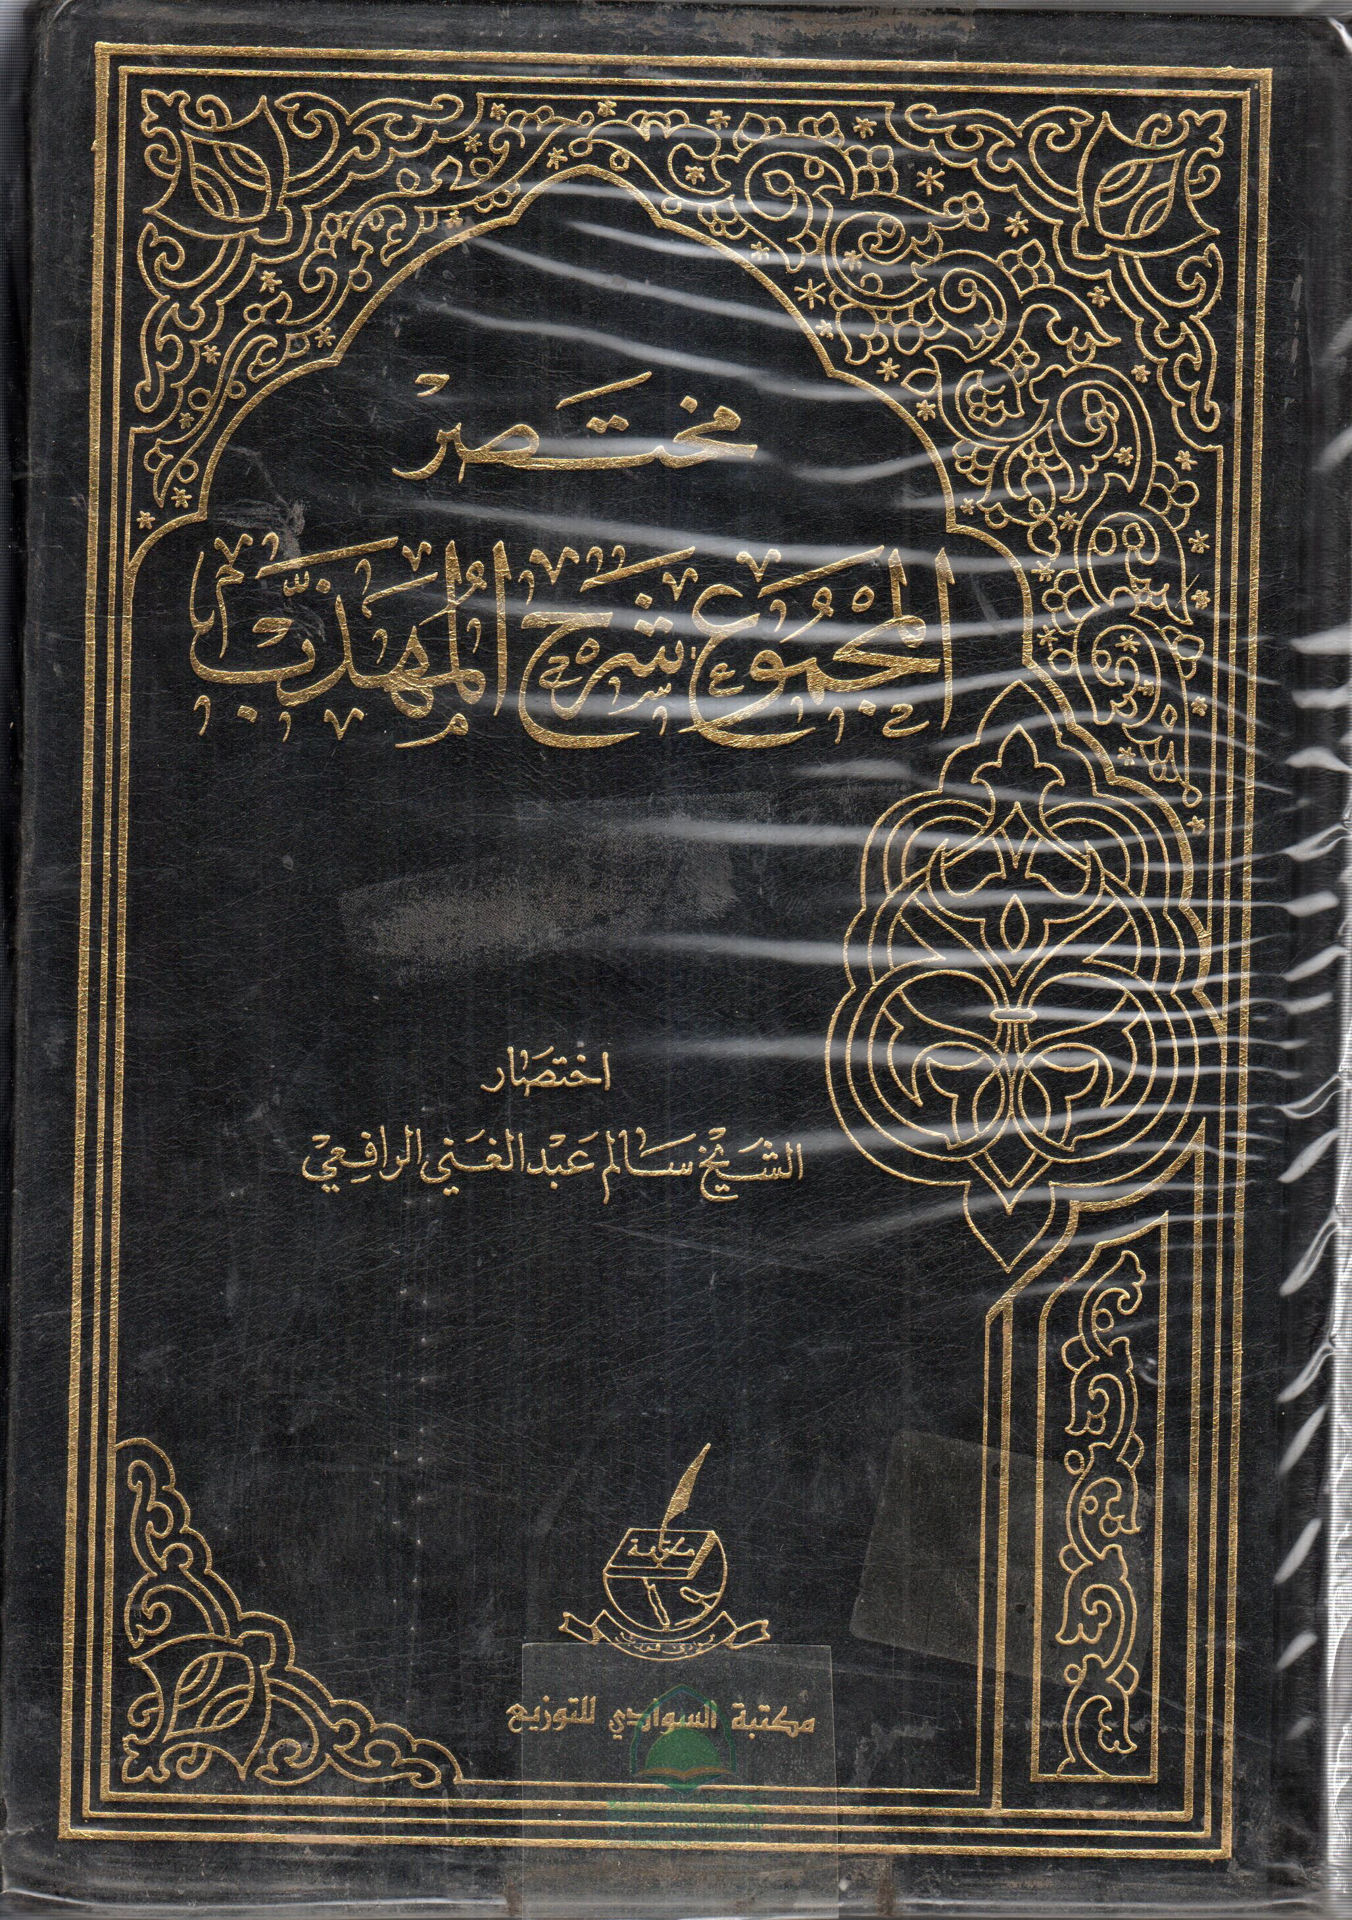 مختصر
المجْمُوع شَرح المُهَذَّبْ
اختصَار
الشيْخ سَالم عَبْد الغَني الرافِعيْ
مكتبة
مكتبة السوادي للتوزيع